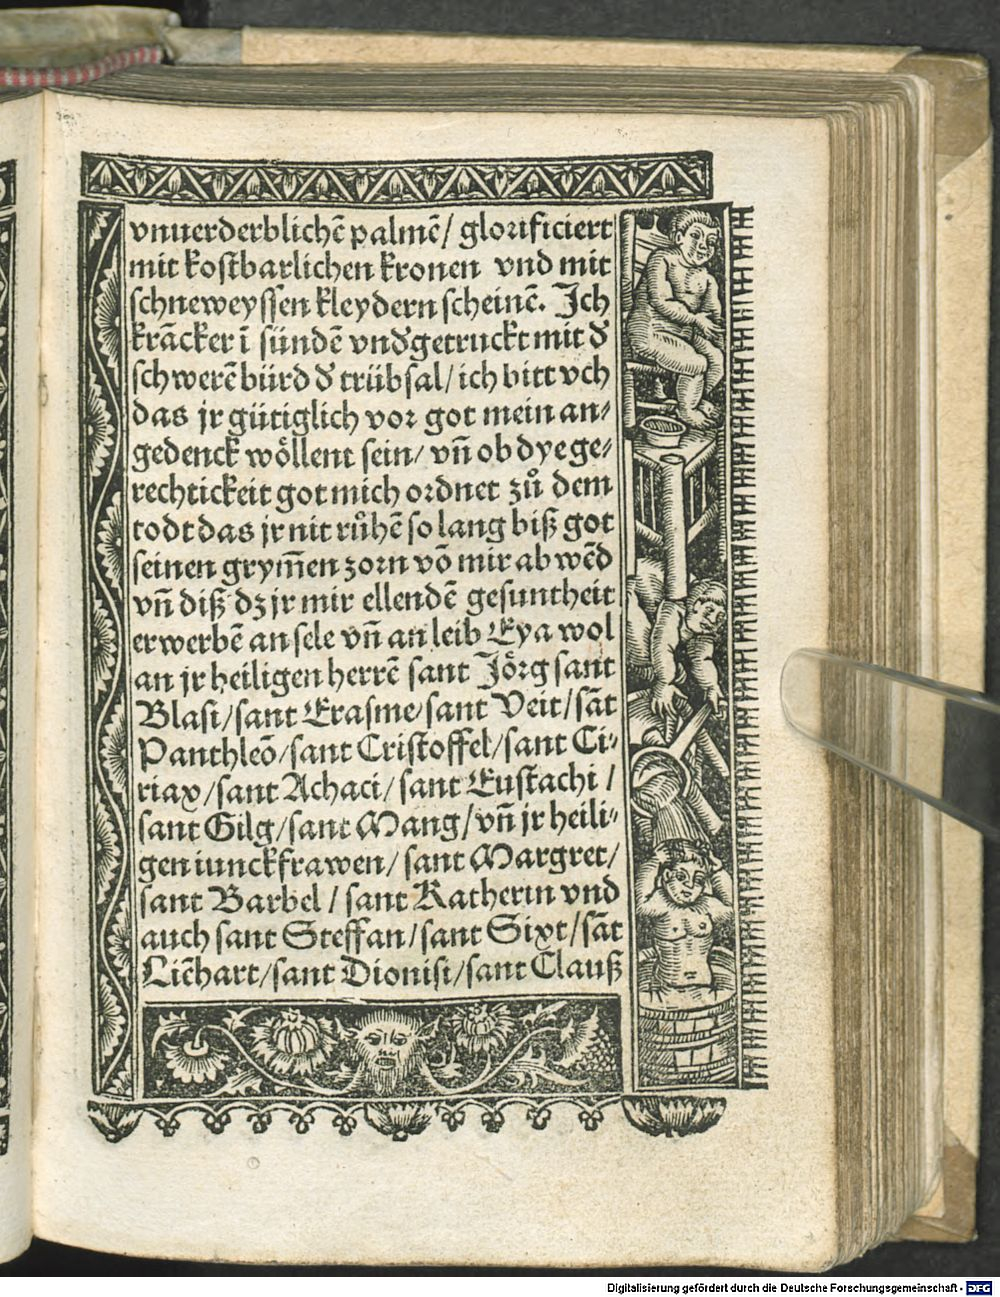 vnuerderblichē palmē/ glorificiert
mit kostbarlichen kronen vnd mit
schneweyssen kleydern scheinē. Jch
krācker ī sündē vnd̕getruckt mit d̕
schwerē bürd d̕ trübsal/ ich bitt vch
das jr gütiglich vor got mein an⸗
gedenck wöllent sein/ vn̄ ob dye ge⸗
rechtickeit got mich ordnet zů dem
todt das jr nit růhē so lang biß got
seinen grym̄en zorn vō mir ab wēd
vn̄ diß dz jr mir ellendē gesuntheit
erwerbē an sele vn̄ an leib Eya wol
an jr heiligen herrē sant Jörg sant
Blasi/sant Erasme/sant Veit/sāt
Panthleō/sant Cristoffel/sant Ci⸗
riax/sant Achaci/ sant Eustachi /
sant Gilg/sant Mang/vn̄ jr heili⸗
gen iunckfrawen/ sant Margret/
sant Barbel / sant Katherin vnd
auch sant Steffan/sant Sixt/sāt
Liēhart/sant Dionisi/sant Clauß
Digitalisierung gefördert durch die Deutsche Forschungsgemeinschaft - DFG